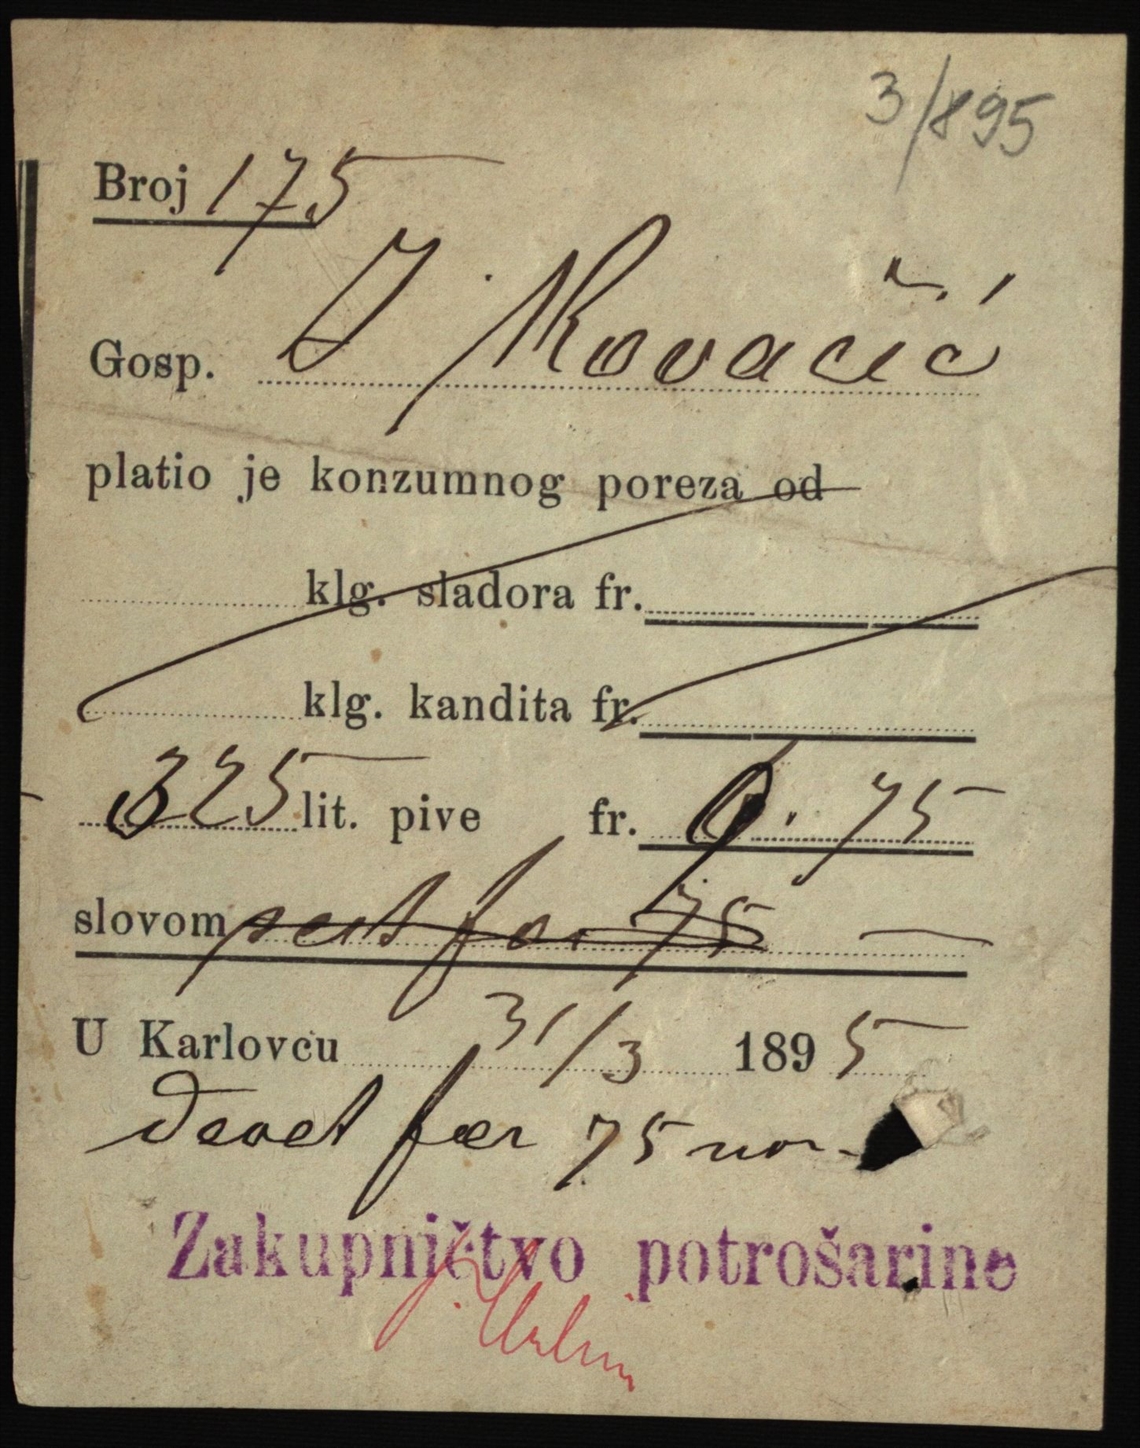 3/895
Broj 175
Gosp. J. Kovačić
platio je konzumnog poreza od
klg. sladora fr.
klg. kandita fr.
325 lit. pive fr. 9.75
slovom pet for 75
U Karlovcu 31/3 1895
devet for 75 nov.
Zakupničtvo potrošarine